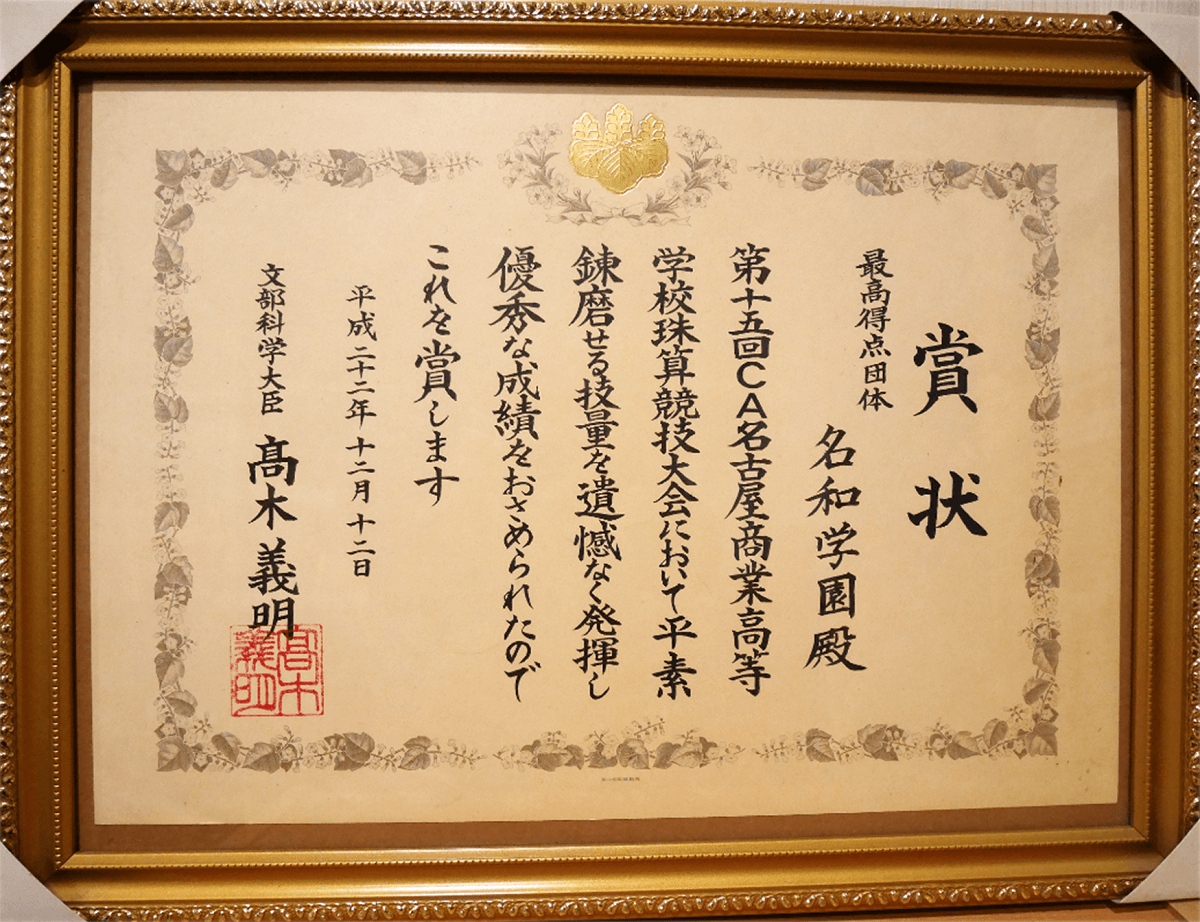 賞状
最高得点団体
名和学園殿
第十五回CA名古屋商業高等
学校珠算競技大会において平素
錬磨せる技量を遺憾なく発揮し
優秀な成績をおさめられたので
これを賞します
平成二十二年十二月十二日
文部科学大臣 髙木義明
髙木
義明